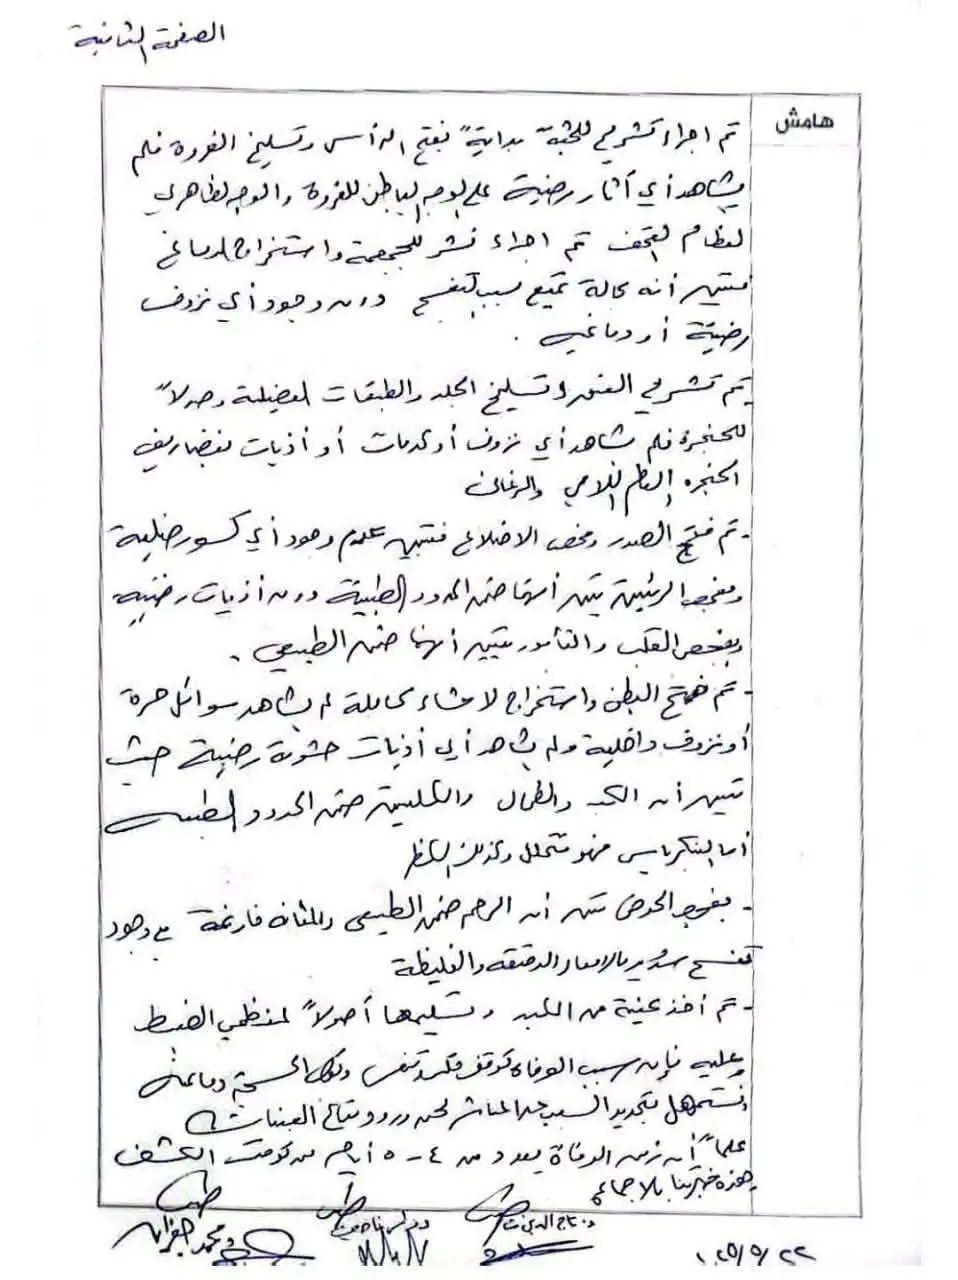 الصفحة الثانية
هامش
تم اجراء تشريح للجثة بدايةً بفتح الرأس وتسليخ الفروة فلم
يشاهد أي آثار رضية على الوجه الباطن للفروة والوجه الظاهري
لعظام القحف تم اجراء نشر للجمجمة واستخراج الدماغ
فتبين أنه بحالة تميع بسبب التفسخ دون وجود أي نزوف
رضية أو دماغية .
تم تشريح العنق وتسليخ الجلد والطبقات العضلية وصولاً
للحنجرة فلم نشاهد أي نزوف أو كدمات أو أذيات بغضاريف
الحنجرة العظم اللامي والرغامى
- تم فتح الصدر وفحص الاضلاع فتبين عدم وجود أي كسور ضلعية
وبفحص الرئتين تبين أنهما ضمن الحدود الطبيعية دون أذيات رضية
وبفحص القلب والتأمور تبين أنهما ضمن الطبيعي .
- تم فتح البطن واستخراج الاحشاء كاملة لم يشاهد سوائل حرة
أو نزوف داخلية ولم يشاهد أي أذيات حشوية رضية حيث
تبين أن الكبد والطحال والكليتين ضمن الحدود الطبيعية
أما البنكرياس فهو متحلل وكذلك
- بفحص الحوض تبين أن الرحم ضمن الطبيعي والمثانة فارغة مع وجود
تفسخ شديد بالامعاء الدقيقة والغليظة
- تم أخذ عينة من الكبد وتسليمها أصولاً لمنظمي الضبط
وعليه فإن سبب الوفاة توقف قلب وتنفس
ونستمهل بتحديد السبب المباشر لحين ورود نتائج العينات
علماً أن زمن الوفاة يعود من ٤ - ٥ أيام من وقت الكشف
وهذه خبرتنا بالاجماع
طبيب طبيب طبيب
د. تاج الدين
د محمد
٢٠٢٥/٥/٢٢